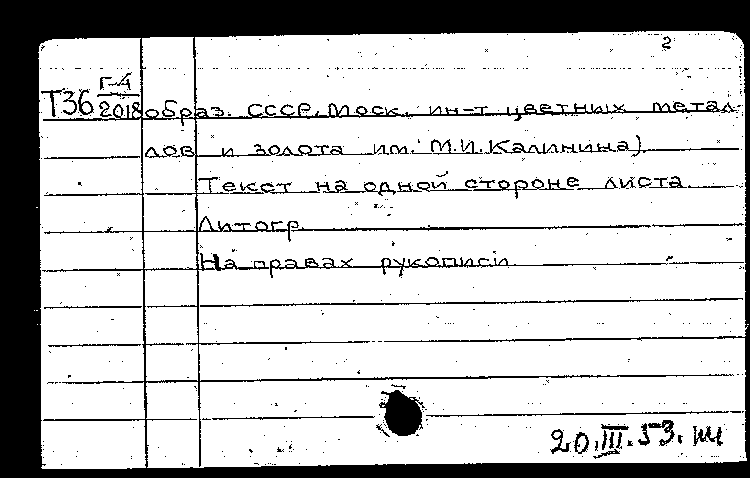 2
Т36 Г-4
2018
образ. СССР. Моск. ин-т цветных метал-
лов и золота им. М.И. Калинина).
Текст на одной стороне листа
Литогр.
На правах рукописи.
20.III.53.